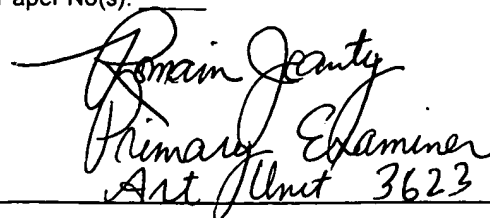 Paper No(s). ____
Romain Jeanty
Primary Examiner
Art Unit 3623